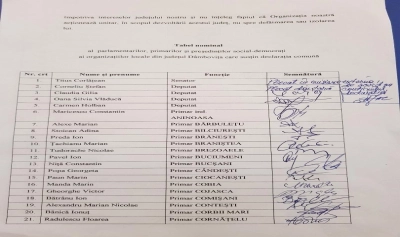 împotriva intereselor județului nostru și nu înțeleg faptul că Organizația noastră
acționează unitar, în scopul dezvoltării acestui județ, nu spre defăimarea sau izolarea
lui.
Tabel nominal
al parlamentarilor, primarilor și președinților social-democrați
ai organizațiilor locale din județul Dâmbovița care susțin declarația comună
Nr. crt Nume și prenume Funcție Semnătură
1. Titus Corlățean Senator
2. Corneliu Ștefan Deputat
3. Claudia Gilia Deputat
4. Oana Silvia Vlăducă Deputat
5. Carmen Holban Deputat
6. Maricescu Constantin Primar ind. ANINOASA
7. Alexe Marian Primar BĂRBULEȚU
8. Stoican Adina Primar BILCIUREȘTI
9. Preda Ion Primar BRĂNEȘTI
10. Marian Primar BRANIȘTEA
11. Tudorache Nicolae Primar BREZOAELE
12. Pavel Ion Primar BUCIUMENI
13. Niță Constantin Primar BUCȘANI
14. Popa Georgeta Primar CÂNDEȘTI
15. Paun Marin Primar CIOCĂNEȘTI
16. Manda Marin Primar COBIA
17. Gheorghe Victor Primar COJASCA
18. Ion Primar COMIȘANI
19. Alexandru Marian Nicolae Primar CONTEȘTI
20. Bănică Ionuț Primar CORBII MARI
21. Radulescu Floarea Primar CORNĂȚELU